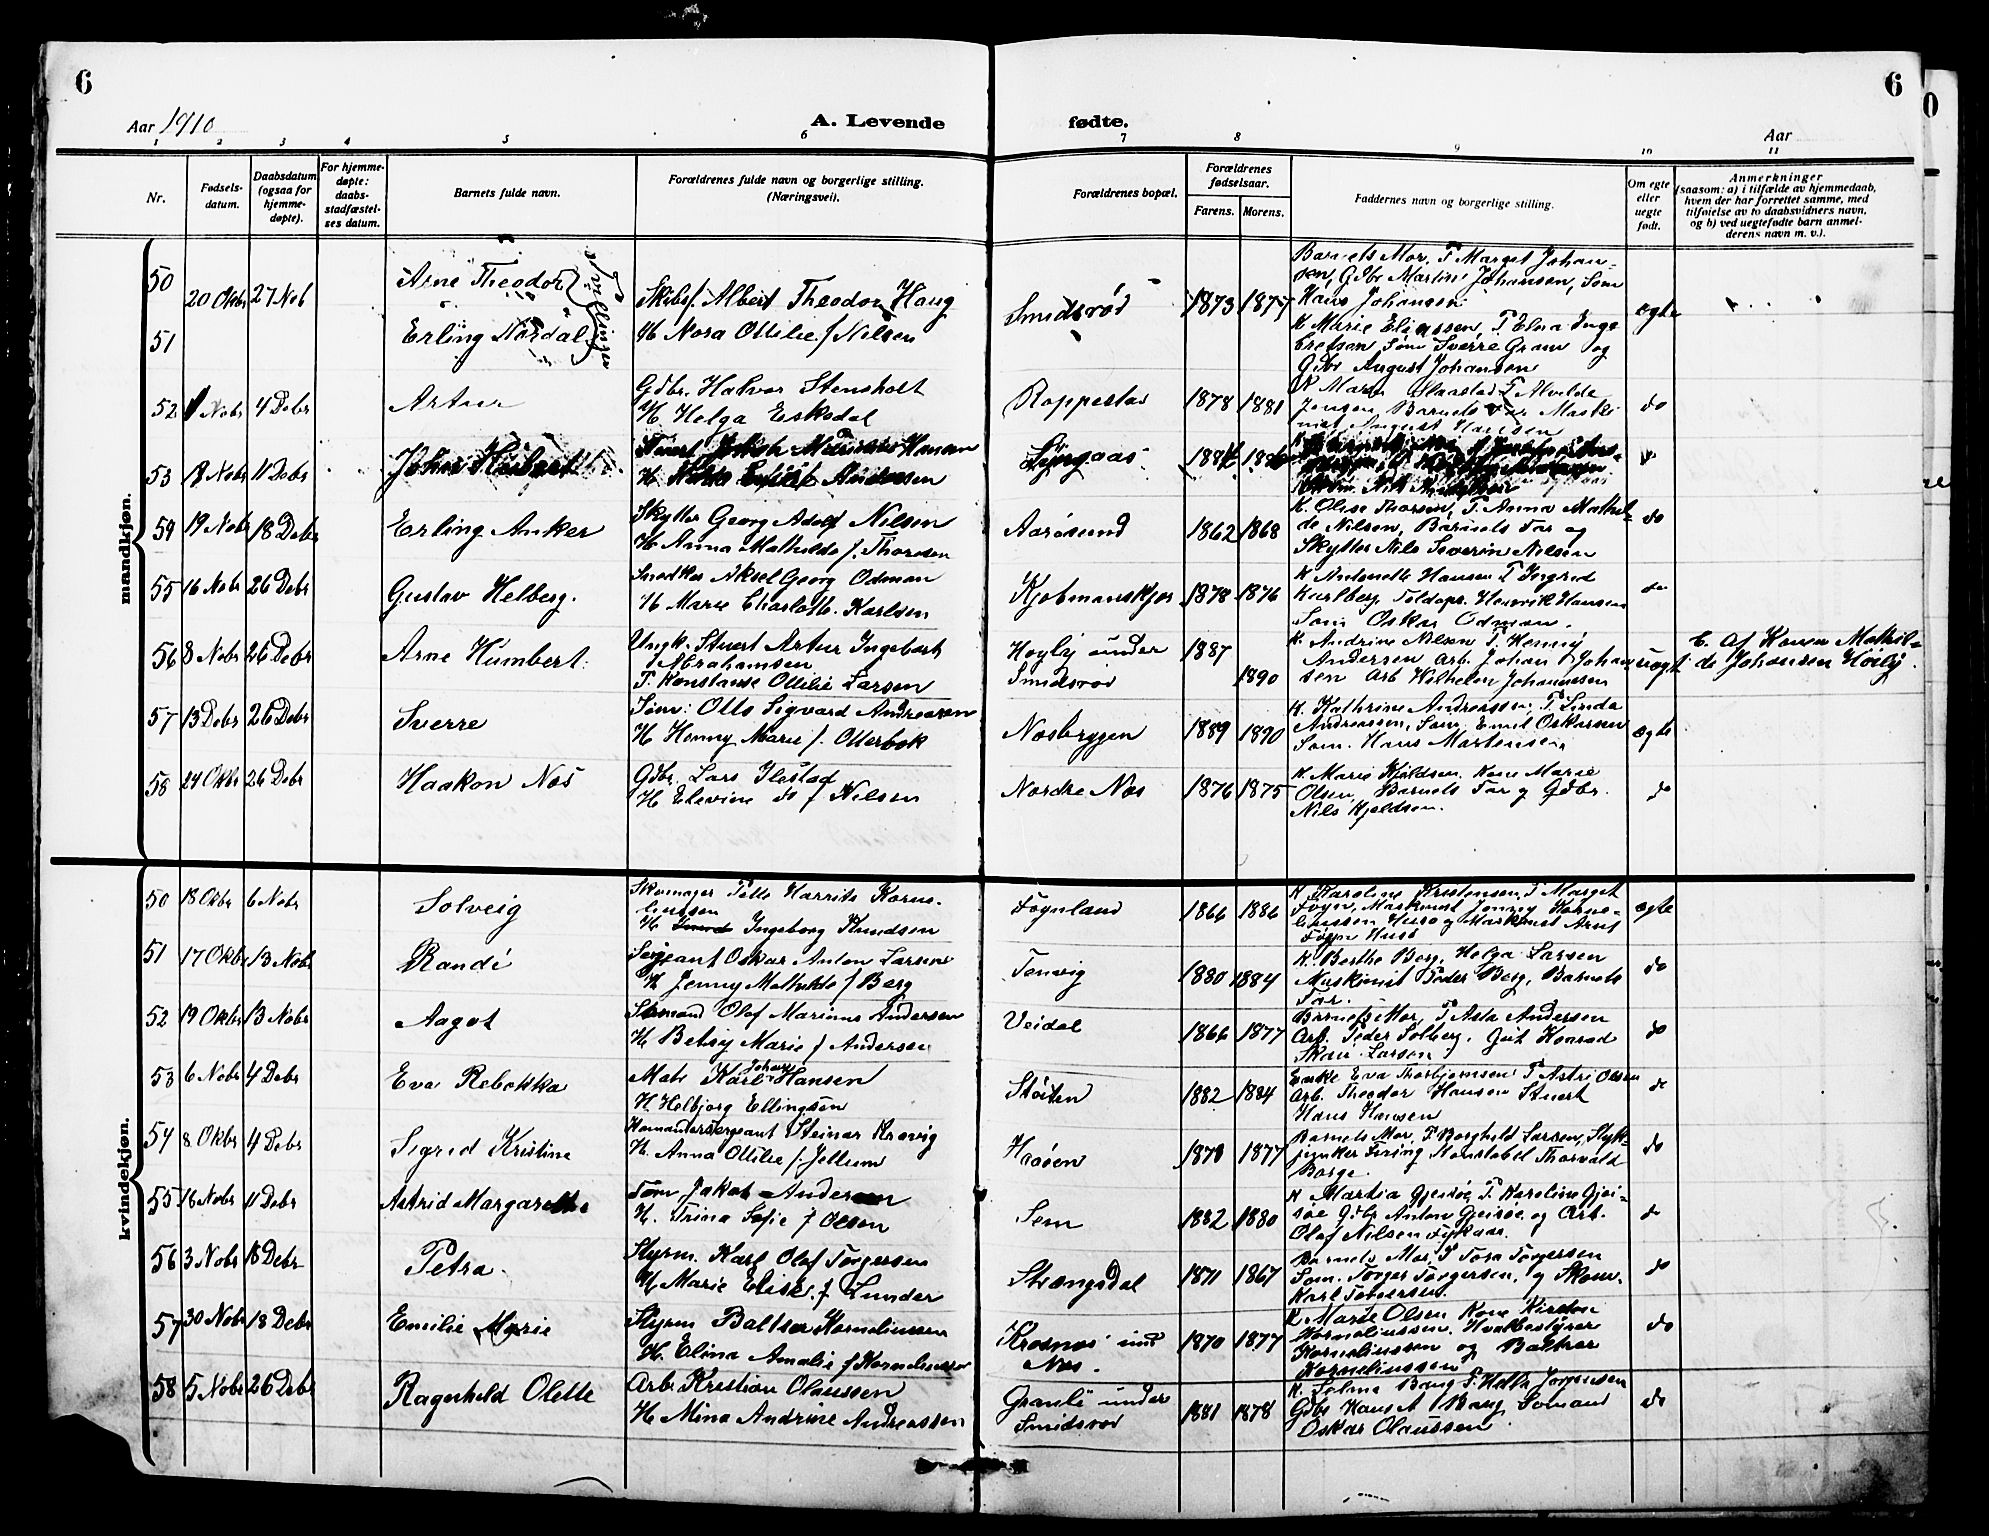 6
6
Aar 1910
A. Levende fødte.
Aar
1 2 3 4 5 6 7 8 9 10 11
Nr.
Fødsels-
datum.
Daabsdatum
(ogsaa for
hjemme-
døpte).
For hjemme-
døpte:
daabs-
stadfæstel-
ses datum.
Barnets fulde navn.
Forældrenes fulde navn og borgerlige stilling.
(Næringsvei).
Forældrenes bopæl.
Forældrenes
fødselsaar.
Farens. Morens.
Faddernes navn og borgerlige stilling.
Om egte
eller
uegte
født.
Anmerkninger
(saasom: a) i tilfælde av hjemmedaab,
hvem der har forrettet samme, med
tilføielse av to daabsvidners navn,
og b) ved uegtefødte barn anmel-
derens navn m. v.).
mandkjøn.
50
20 Oktbr 27 Nob
Arne Theodor
Tvillinger
Skibsf. Albert Theodor Haug
Smidsrød
1873 1877
Barnets Mor, P. Marget Johan-
sen, Gdbr Martin Johansen, Søm
Hans Johansen
ægte
51
Erling Nordal
H Nora Ottilie f Nilsen
K Marie Eliassen, P. Elna Inge
bretsen Søm Sverre Gram og
Gdbr August Johansen
52 Nobr 4 Debr
Artur
Gdbr. Halvor Stensholt
H Helga Eskedal
Roppestad
1878 1881
Jensen Barnets Far Maski-
nist August Hansen
do
53 Nobr 11 Debr
Hansen
H Andersen
54 19 Nobr 18 Debr
Erling Anker
Skytter Georg Adolf Nilsen
H Anna Mathilde f. Thoresen
Aarøsund
1862 1868
K. Olise Thorsen, P. Anna Mathil-
de Nilsen, Barnets Far og
Skytter Nils Severin Nilsen
do
55 16 Nobr 26 Debr
Gustav Helberg.
Snedker Aksel Georg Odman
H Marie Charlotte Karlsen
Kjøbmanskjær
1878 1876
K Antonette Hansen P Ingrid
Karlberg Toldopr. Henrik Hansen
Søm Oskar Odman.
do
56 8 Nobr 26 Debr
Arne Humbert
Ungk. Stuert Artur Ingebert
Abrahamsen
P. Konstanse Ottilie Larsen
Høyby under
Smidsrød
1887
1890
K. Andrine Nilsen P. Henny
Andersen Arb. Johan Johan
sen Arb Wilhelm Johannssen
uegte
b. Af Konen Mathil-
de Johansen Høiby.
57 13 Debr 26 Debr
Sverre
Søm: Otto Sigvard Andreasen
H Henny Marie f. Otterbek
Nesbryggen
1889 1890
K. Kathrine Andreassen, P. Linda
Andreassen, Søm Emil Oskarsen
Søm. Hans Martensen
ægte
58 24 Oktbr 26 Debr
Haakon Nes
Gdbr. Lars Ilestad
H Elevine do f Nilsen
Nordre Nes
1876 1875
K. Marie Kjeldsen. Kone Marie
Olsen, Barnets Far og Gdbr.
Nils Kjeldsen.
do
kvindekjøn.
50 18 Oktbr 6 Nobr
Solveig
Skomager Pelle Harrits Korne-
liussen
H Ingeborg Knudsen
Føynland
1866 1886
K Karoline Kristensen, P. Marget
Føyn, Maskinist Jenny Korne-
liussen Huse og Maskinist Arnt
Føyn Huse
ægte
51 17 Oktbr 13 Nobr
Randi
Sergeant Oskar Anton Larsen
H Jenny Mathilde f Berg
Tenvig
1880 1884
K. Berthe Berg, Helga Larsen
Maskinist Peder Berg, Barnets
Far.
do
52 19 Oktbr 13 Nobr
Aagot
Sømand Olaf Marinus Andersen
H Betsy Marie f Andersen
Veidal
1866 1877
Barnets Mor, P. Asta Andersen
Arb. Peder Solberg. Gut Konrad
Skau Larsen
do
53 6 Nobr 4 Debr
Eva Rebekka
Matr Karl Johan Hansen
H. Helbjørg Ellingsen
Støiten
1882 1884
Enke Eva Thorbjørnsen P Astri Olsen
Arb. Theodor Hansen Stuert
Hans Hansen
do
54 8 Oktbr 4 Debr
Sigrid Kristine
Komandersergeant Steinar Krovig
H. Anna Ottilie f. Jellum
Haasen
1870 1877
Barnets Mor, P. Borghild Larsen, Styk-
junker Fering Konstabel Thorvald
Borge.
do
55 16 Nobr 11 Debr
Astrid Margarethe
Tøm Jakob Andersen
H. Trina Sofie f Olsen
Sem
1882 1880
K Martia Gjeisøe P. Karoline Gjei-
søe Gdbr Anton Gjeisøe og Arb.
Olaf Nilsen
do
56 3 Nobr 18 Debr
Petra.
Styrm. Karl Olaf Torgersen
H Marie Elise f Lunder
Strængsdal
1871 1867
Barnets Mor, P Tora Torgersen
Søm. Torger Torgersen, og Skom.
Karl Torgersen.
do
57 30 Nobr 18 Debr
Emilie Marie
Styrm Baltser Korneliussen
H. Elina Amalie f Korneliussen
Krosnes und
Nes.
1870 1877
K Marte Olsen Kone Kirsten
Korneliussen. Hvalbestyrer
Korneliussen og Baltser
Korneliussen
do
58 5 Nobr 26 Debr
Ragnhild Olette
Arb Kristian Olaussen
H Mina Andrine Andreassen
Granli under
Smidsrød
1881 1878
K. Selma Bang P. Jørgensen
Gdbr Hans Bang Sømand
Oskar Olaussen
do